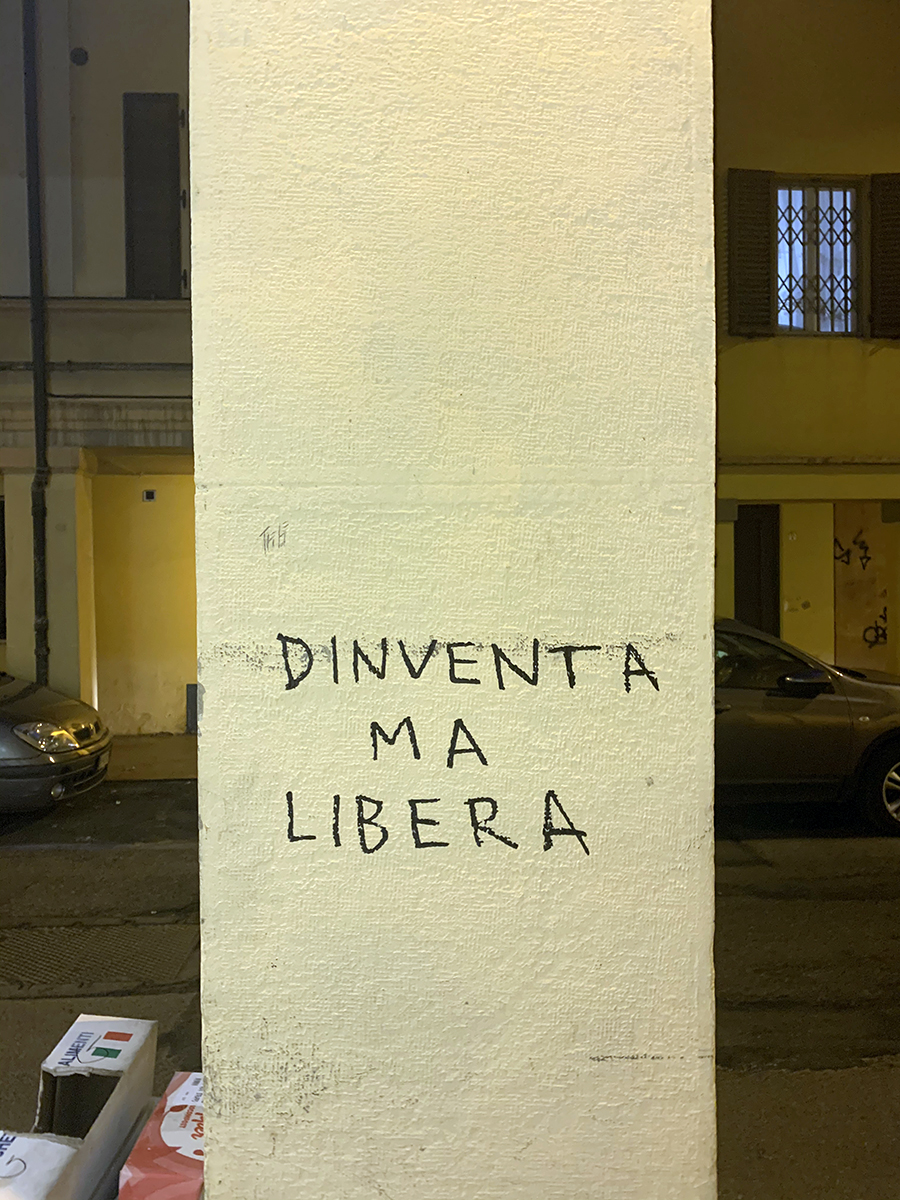 DINVENTA
MA
LIBERA
ALIMENTI